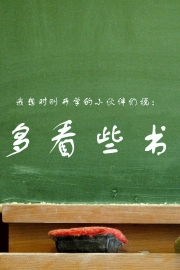 我想对刚开学的小伙伴们说：
多看些书